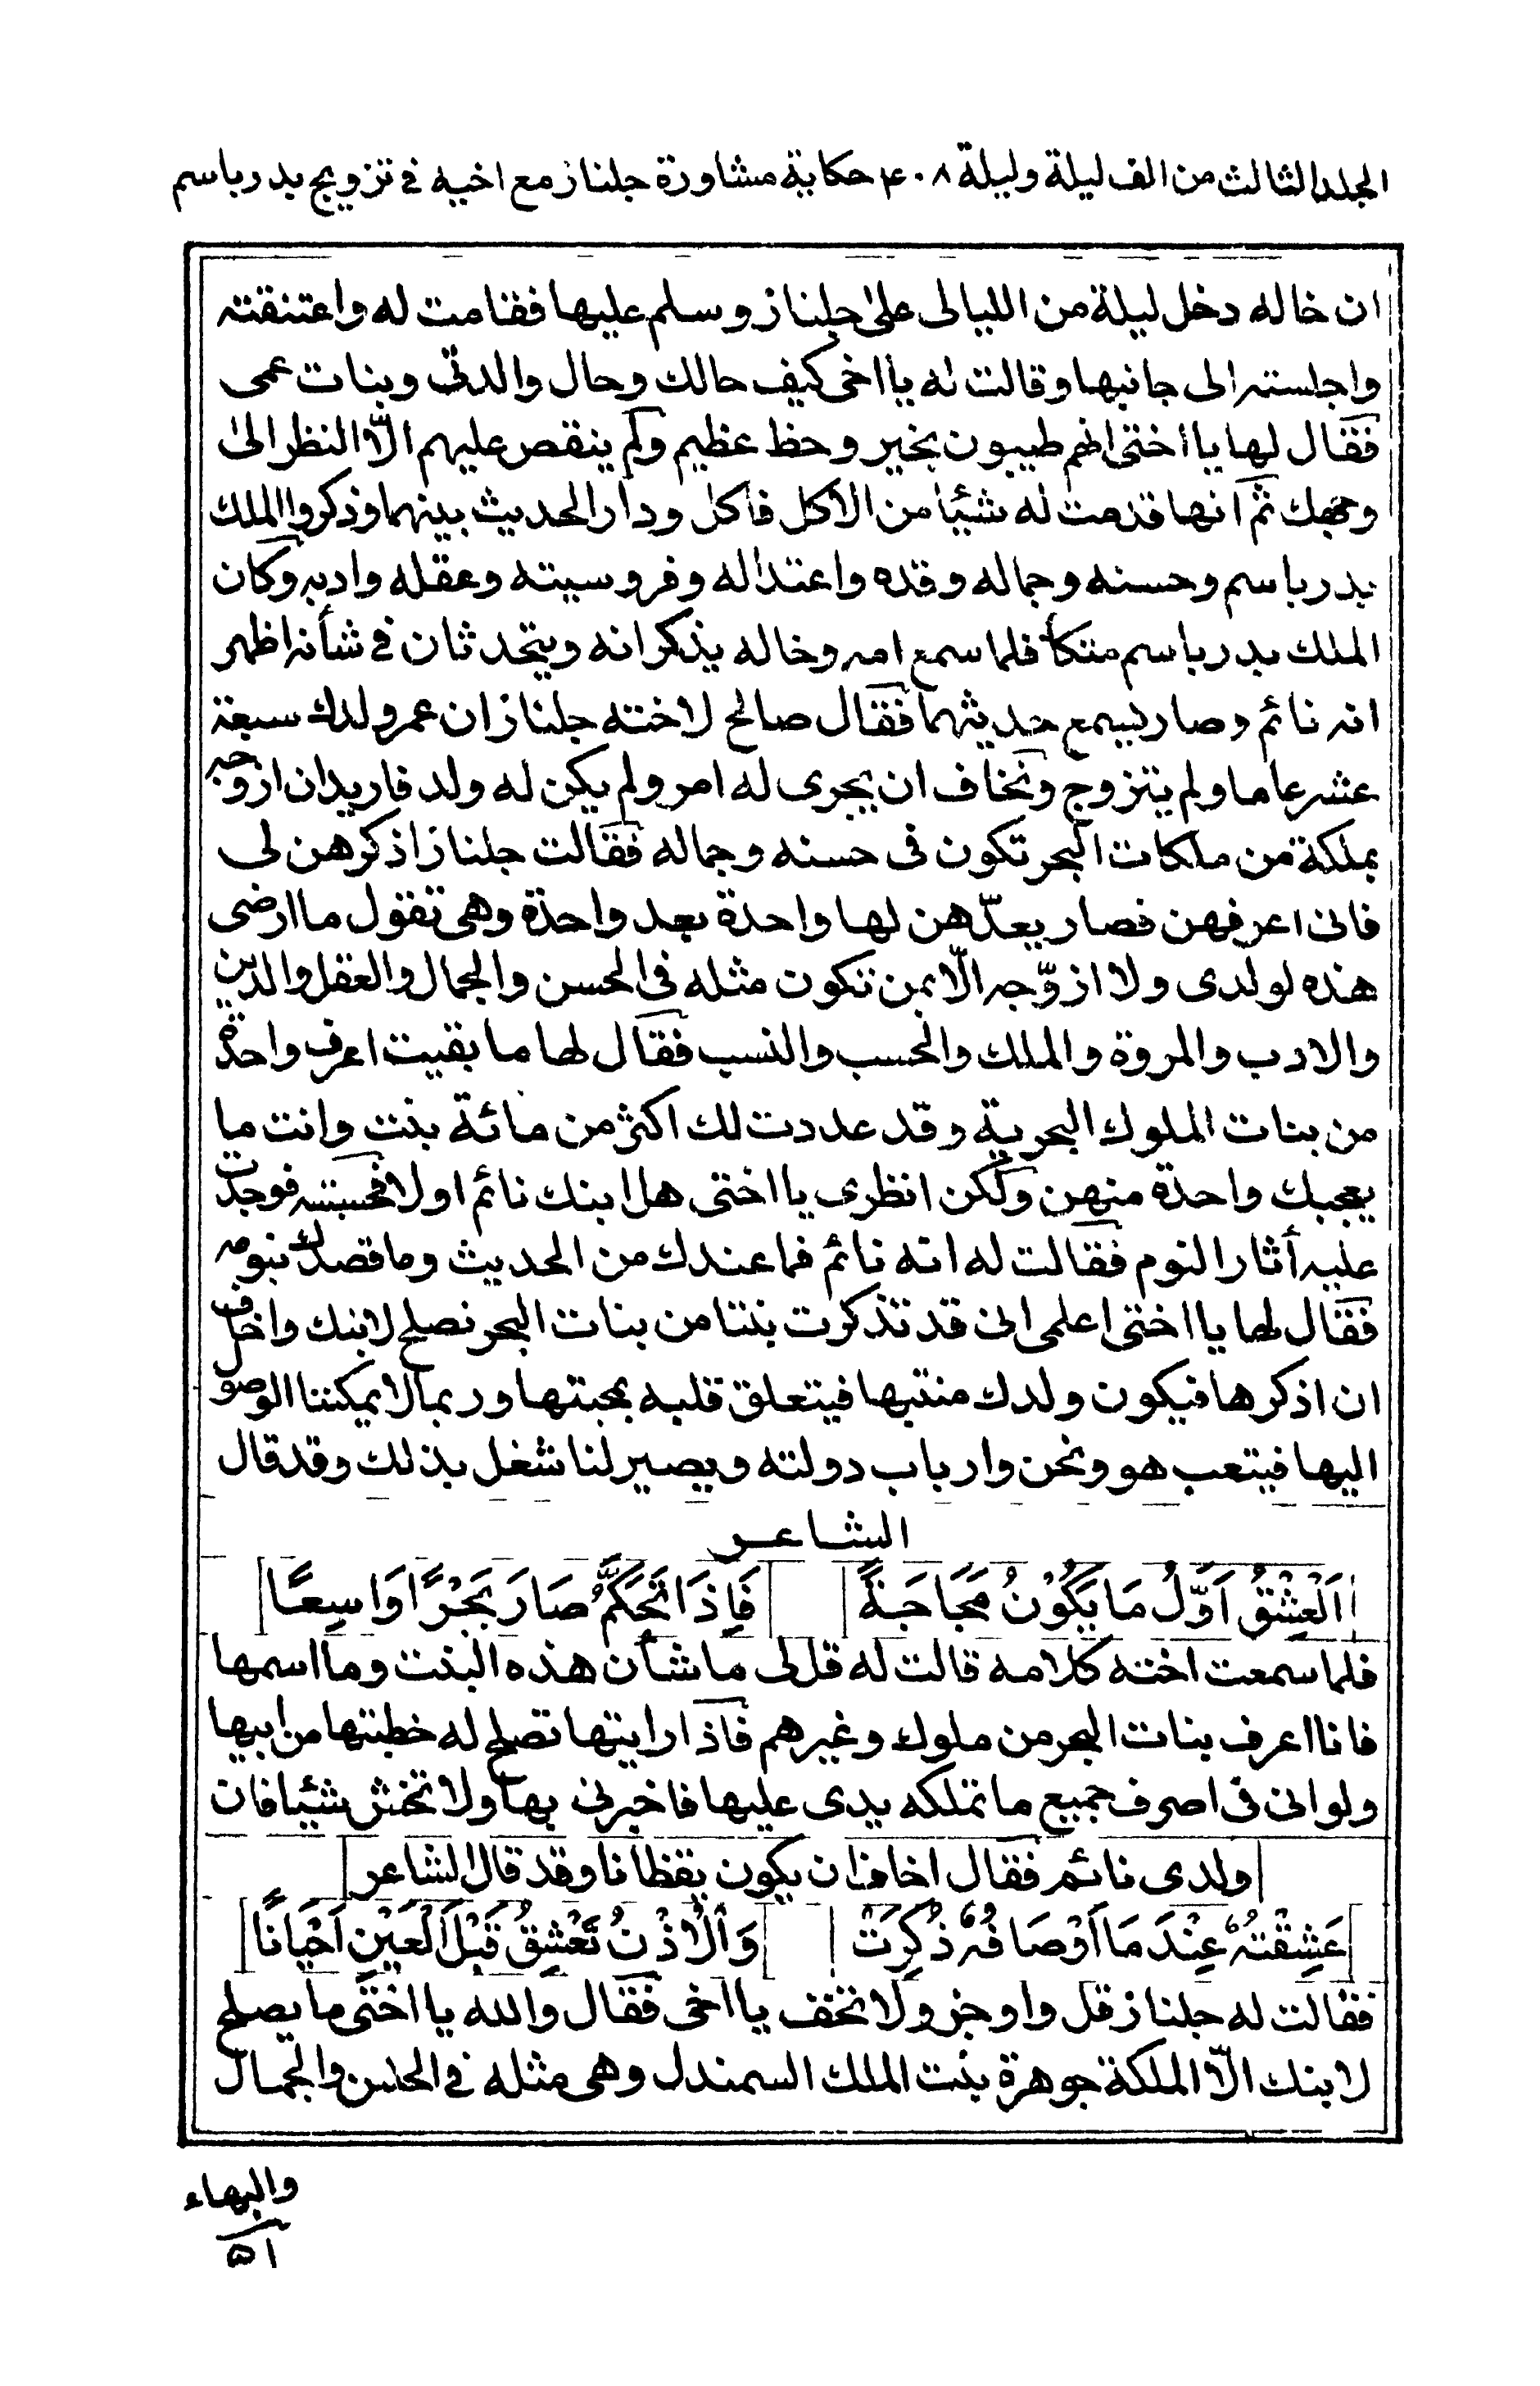 المجلد الثالث من الف ليلة وليلة ٤٠٨ حكاية مشاورة جلناز مع اخيه فى تزويج بدر باسم
ان خاله دخل ليلة من الليالى على جلناز وسلم عليها فقامت له واعتنقته
واجلسته الى جانبها وقالت له يا اخى كيف حالك وحال والدتى وبنات عمى
فقال لها يا اختى انهم طيبون بخير وحظ عظيم ولم ينقص عليهم الّا النظر الى
وجهك ثم انها قدمت له شيئا من الاكل فاكل ودار الحديث بينهما وذكروا الملك
بدر باسم وحسنه وجماله وقده واعتداله وفروسيته وعقله وادبه وكان
الملك بدر باسم متكأ فلما سمع امه وخاله يذكرانه ويتحدثان فى شأنه اظهر
انه نائم وصار يسمع حديثهما فقال صالح لاخته جلناز ان عمر ولدك سبعة
عشر عاما ولم يتزوج ونخاف ان يجرى له امر ولم يكن له ولد فاريد ان ازوجه
بملكة من ملكات البحر تكون فى حسنه وجماله فقالت جلناز اذكرهن لى
فانى اعرفهن فصار يعدّهن لها واحدة بعد واحدة وهى تقول ما ارضى
هذه لولدى ولا ازوّجه الّا بمن تكون مثله فى الحسن والجمال والعقل والدين
والادب والمروة والملك والحسب والنسب فقال لها ما بقيت اعرف واحدة
من بنات الملوك البحرية وقد عددت لك اكثر من مائة بنت وانت ما
يعجبك واحدة منهن ولكن انظرى يا اختى هل ابنك نائم او لا فحسبته فوجدت
عليه أثار النوم فقالت له انه نائم فما عندك من الحديث وما قصدك بنومه
فقال لها يا اختى اعلمى انى قد تذكرت بنتا من بنات البحر تصلح لابنك واخاف
ان اذكرها فيكون ولدك منتبها فيتعلق قلبه بمحبتها وربما لا يمكننا الوصول
اليها فيتعب هو ونحن وارباب دولته ويصير لنا شغل بذلك وقد قال
الشاعر
اَلْعِشْقُ اَوَّلُ مَا يَكُوْنُ مَجَاجَةً فَاِذَا تَحَكَّمَ صَارَ بَحْرًا وَاسِعًا
فلما سمعت اخته كلامه قالت له قل لى ما شأن هذه البنت وما اسمها
فانا اعرف بنات البحر من ملوك وغيرهم فاذا رايتها تصلح له خطبتها من ابيها
ولو انى فى اصرف جميع ما تملكه يدى عليها فاخبرنى بها ولا تخش شيئا فان
ولدى نائم فقال اخاف ان يكون يقظانا وقد قال الشاعر
عَشِقْتُهُ عِنْدَ مَا اَوْصَافُهُ ذُكِرَتْ وَالْاُذْنُ تَعْشِقُ قَبْلَ الْعَيْنِ اَحْيَانًا
فقالت له جلناز قل واوجز ولا تخف يا اخى فقال والله يا اختى ما يصلح
لابنك الّا الملكة جوهرة بنت الملك السمندل وهى مثله فى الحسن والجمال
والبهاء
٥١